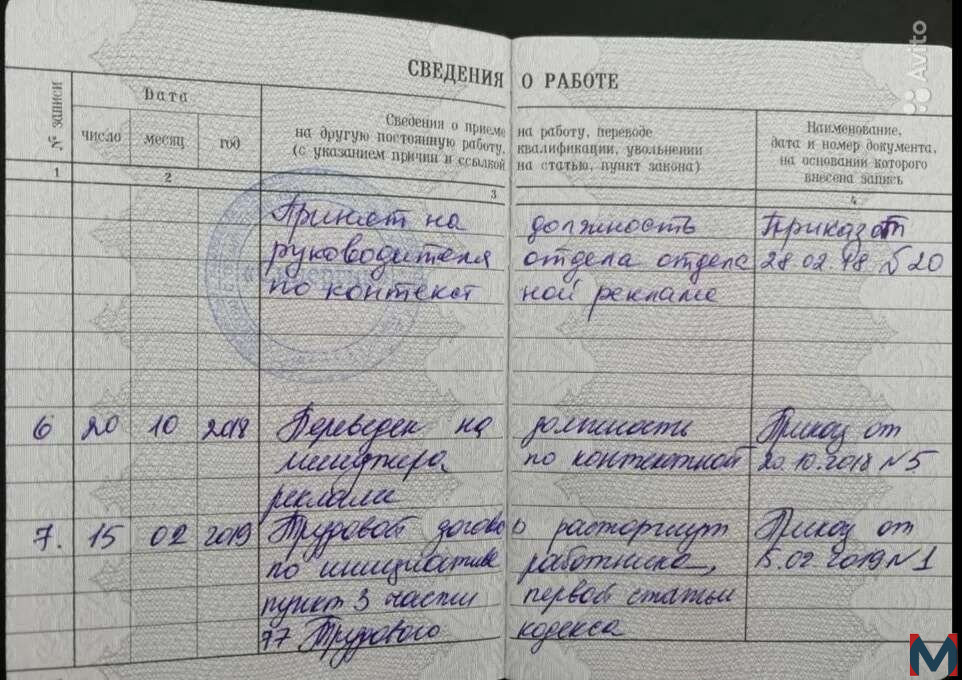 СВЕДЕНИЯ О РАБОТЕ
№ записи
Дата
число месяц год
Сведения о приеме на работу, переводе
на другую постоянную работу, квалификации, увольнении
(с указанием причин и ссылкой на статью, пункт закона)
Наименование,
дата и номер документа,
на основании которого
внесена запись
1 2 3 4
Принят на должность Приказ от
руководителя отдела отдела 28.02.18 №20
по контекст ной рекламе
6 20 10 2018 Переведен на должность Приказ от
менеджера по контекстной 20.10.2018 №5
рекламе
7. 15 02 2019 Трудовой догово р расторгнут Приказ от
по инициативе работника, 15.02.2019 №1
пункт 3 части первой статьи
77 Трудового кодекса
Avito
M